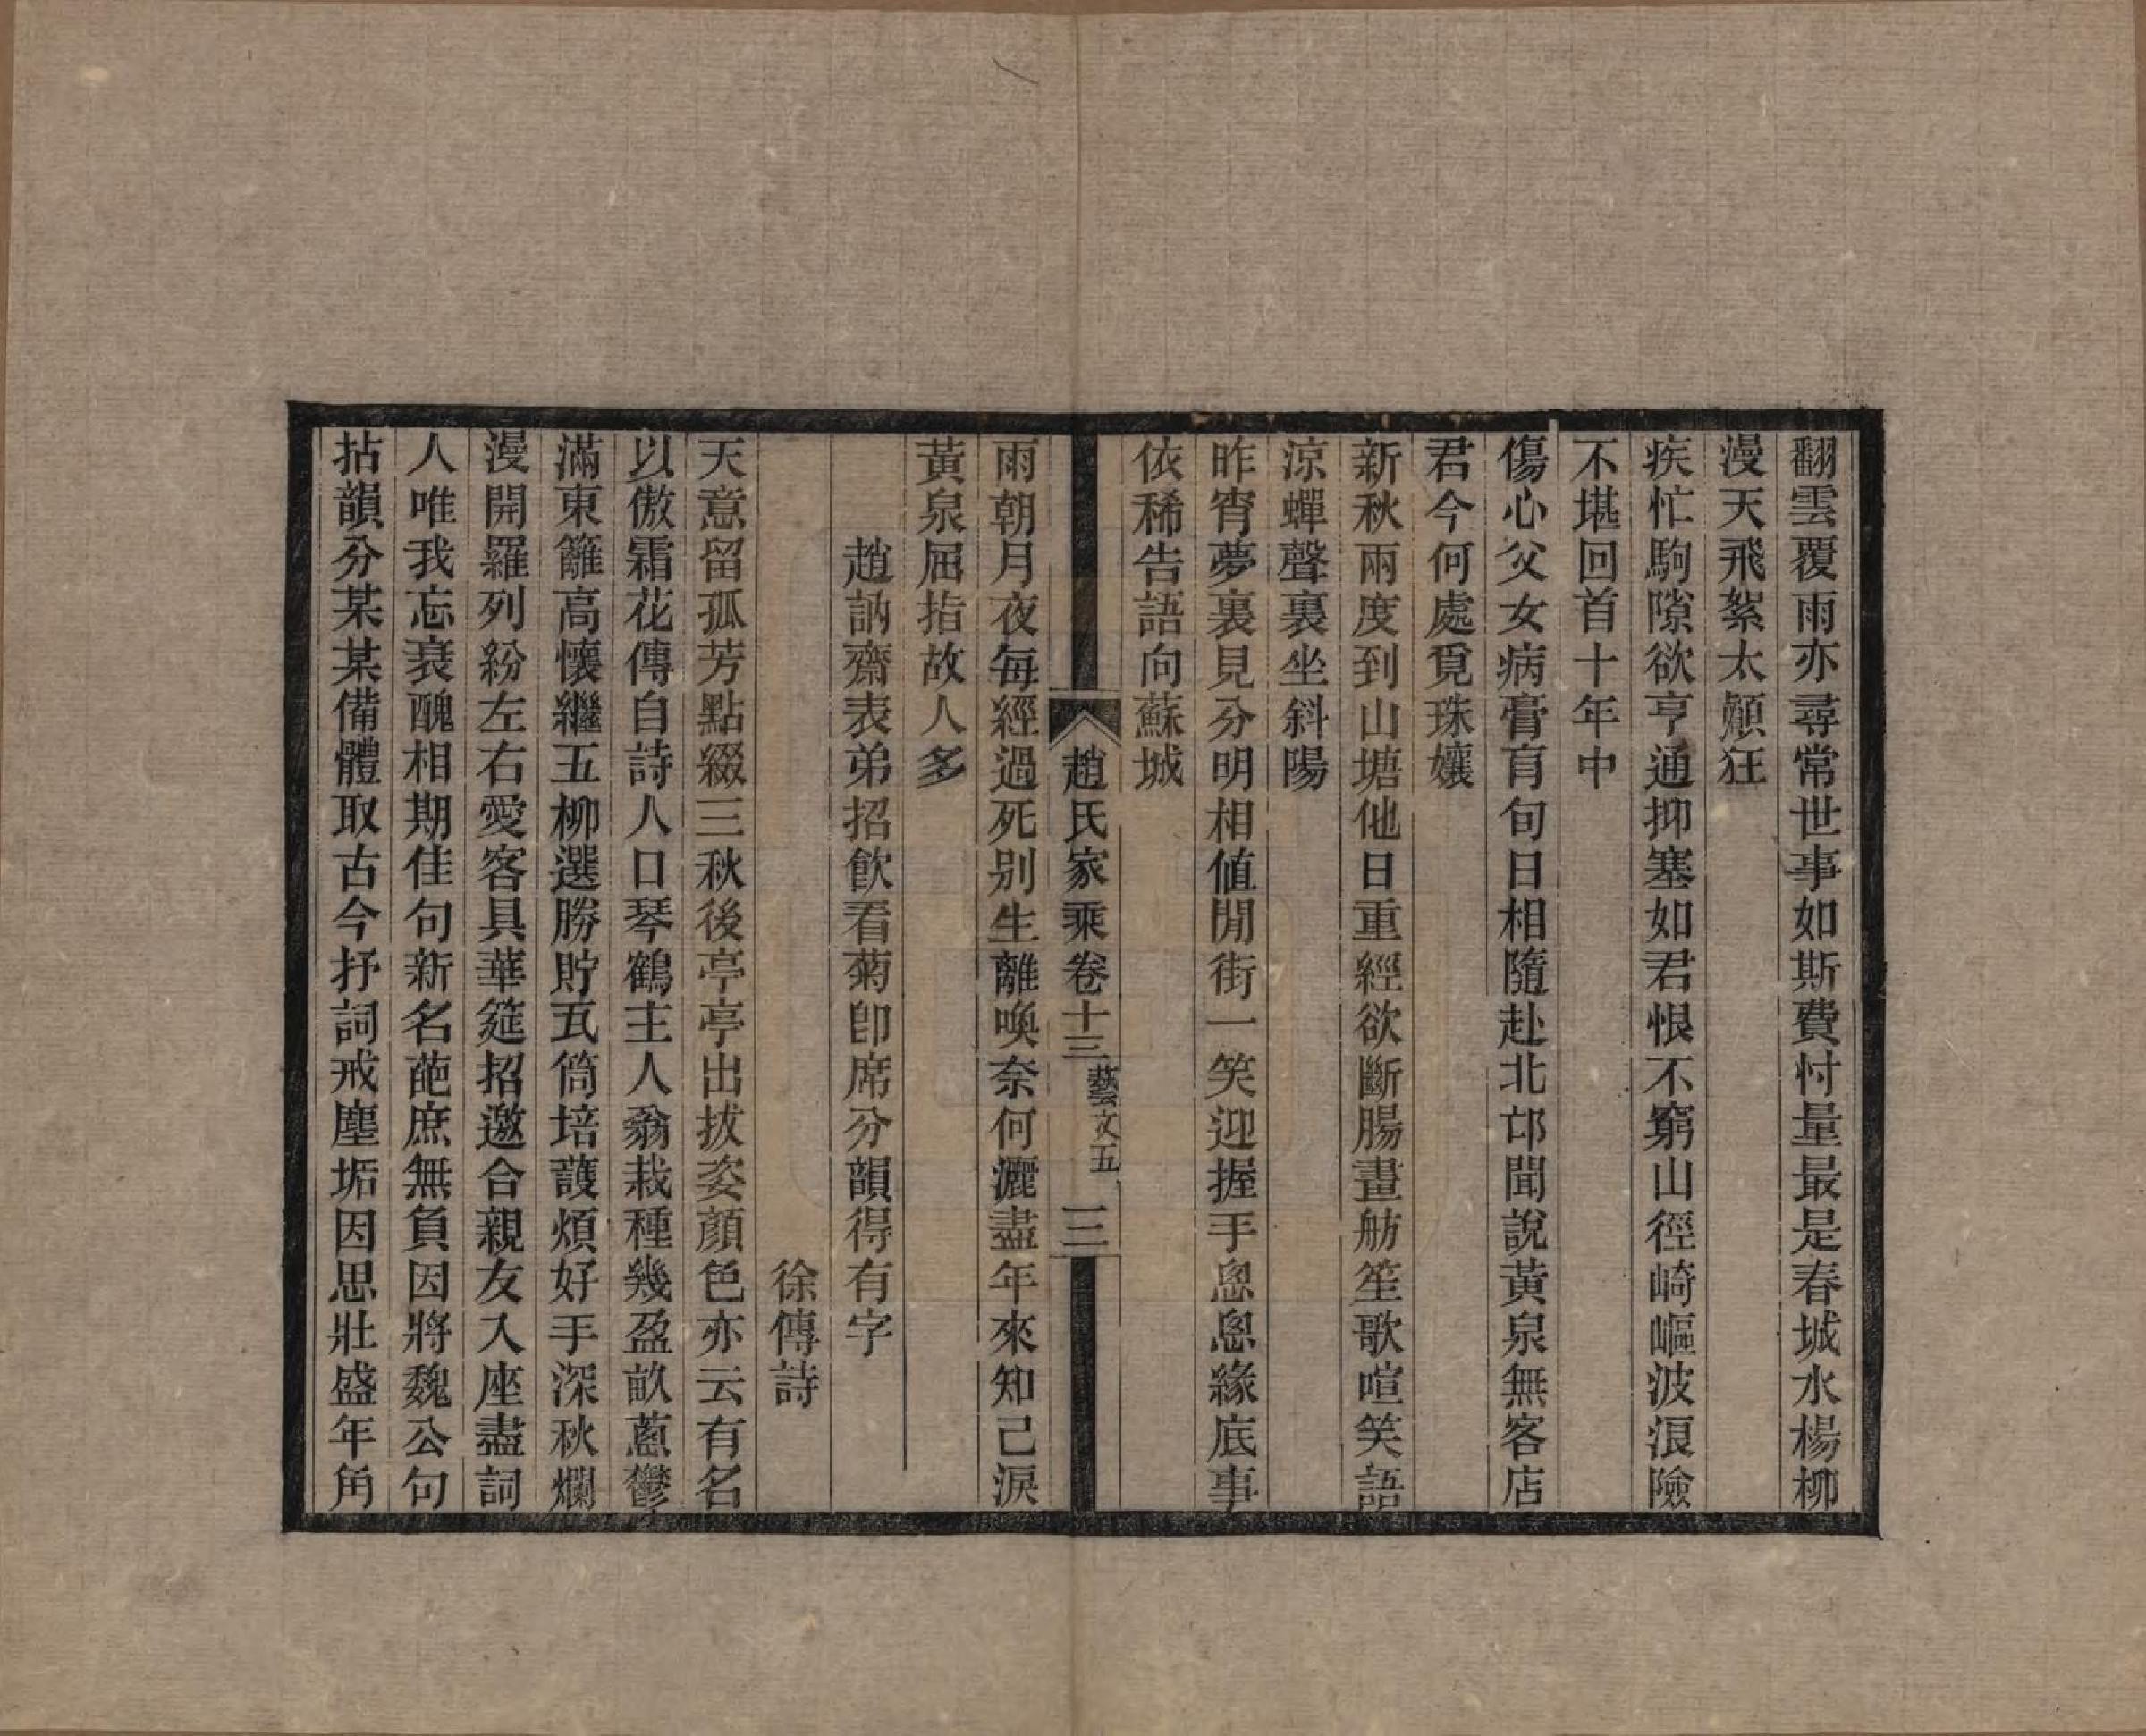 翻雲覆雨亦尋常世事如斯費忖量最是春城水楊柳
漫天飛絮太顛狂
疾忙駒隙欲亨通抑塞如君恨不窮山徑崎嶇波浪險
不堪回首十年中
傷心父女病膏肓旬日相隨赴北邙聞說黃泉無客店
君今何處覓珠孃
新秋兩度到山塘他日重經欲斷腸畫舫笙歌喧笑語
涼蟬聲裏坐斜陽
昨宵夢裏見分明相值閒街一笑迎握手悤悤緣底事
依稀告語向蘇城
趙氏家乘卷十三 藝文五 三
雨朝月夜每經過死別生離喚奈何灑盡年來知己淚
黃泉屈指故人多
趙訥齋表弟招飮看菊卽席分韻得有字
徐傳詩
天意留孤芳點綴三秋後亭亭出拔姿顏色亦云有名
以傲霜花傳自詩人口琴鶴主人翁栽種幾盈畝蔥鬱
滿東籬高懷繼五柳選勝貯瓦筒培護煩好手深秋爛
漫開羅列紛左右愛客具華筵招邀合親友入座盡詞
人唯我忘衰醜相期佳句新名葩庶無負因將魏公句
拈韻分某某備體取古今抒詞戒塵垢因思壯盛年角